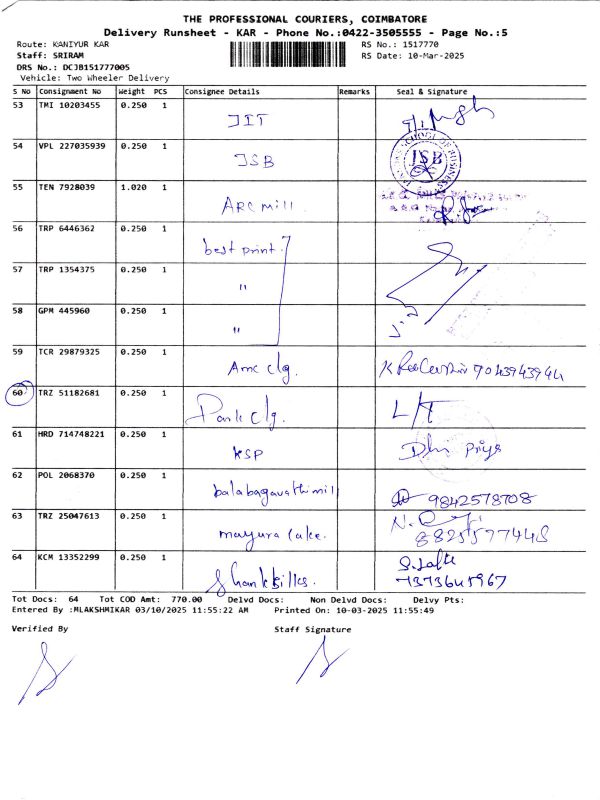 THE PROFESSIONAL COURIERS, COIMBATORE
Delivery Runsheet - KAR - Phone No.:0422-3505555 - Page No.:5
Route: KANIYUR KAR
RS No.: 1517770
Staff: SRIRAM
RS Date: 10-Mar-2025
DRS No.: DCJB151777005
Vehicle: Two Wheeler Delivery
S No Consignment No Weight PCS Consignee Details Remarks Seal & Signature
53 TMI 10203455 0.250 1 JIT
54 VPL 227035939 0.250 1 JSB JSB
SCHOOL OF BUSINESS
55 TEN 7928039 1.020 1 ARC mill
56 TRP 6446362 0.250 1 best print
57 TRP 1354375 0.250 1 "
58 GPM 445960 0.250 1 "
59 TCR 29879325 0.250 1 Amc clg. 7043943944
60 TRZ 51182681 0.250 1 Park clg.
61 HRD 714748221 0.250 1 KSP Priya
62 POL 2068370 0.250 1 balabagavathi mill 9842578708
63 TRZ 25047613 0.250 1 mayura cake.
8825577448
64 KCM 13352299 0.250 1
7373645967
Tot Docs: 64 Tot COD Amt: 770.00 Delvd Docs: Non Delvd Docs: Delvy Pts:
Entered By :MLAKSHMIKAR 03/10/2025 11:55:22 AM Printed On: 10-03-2025 11:55:49
Verified By Staff Signature